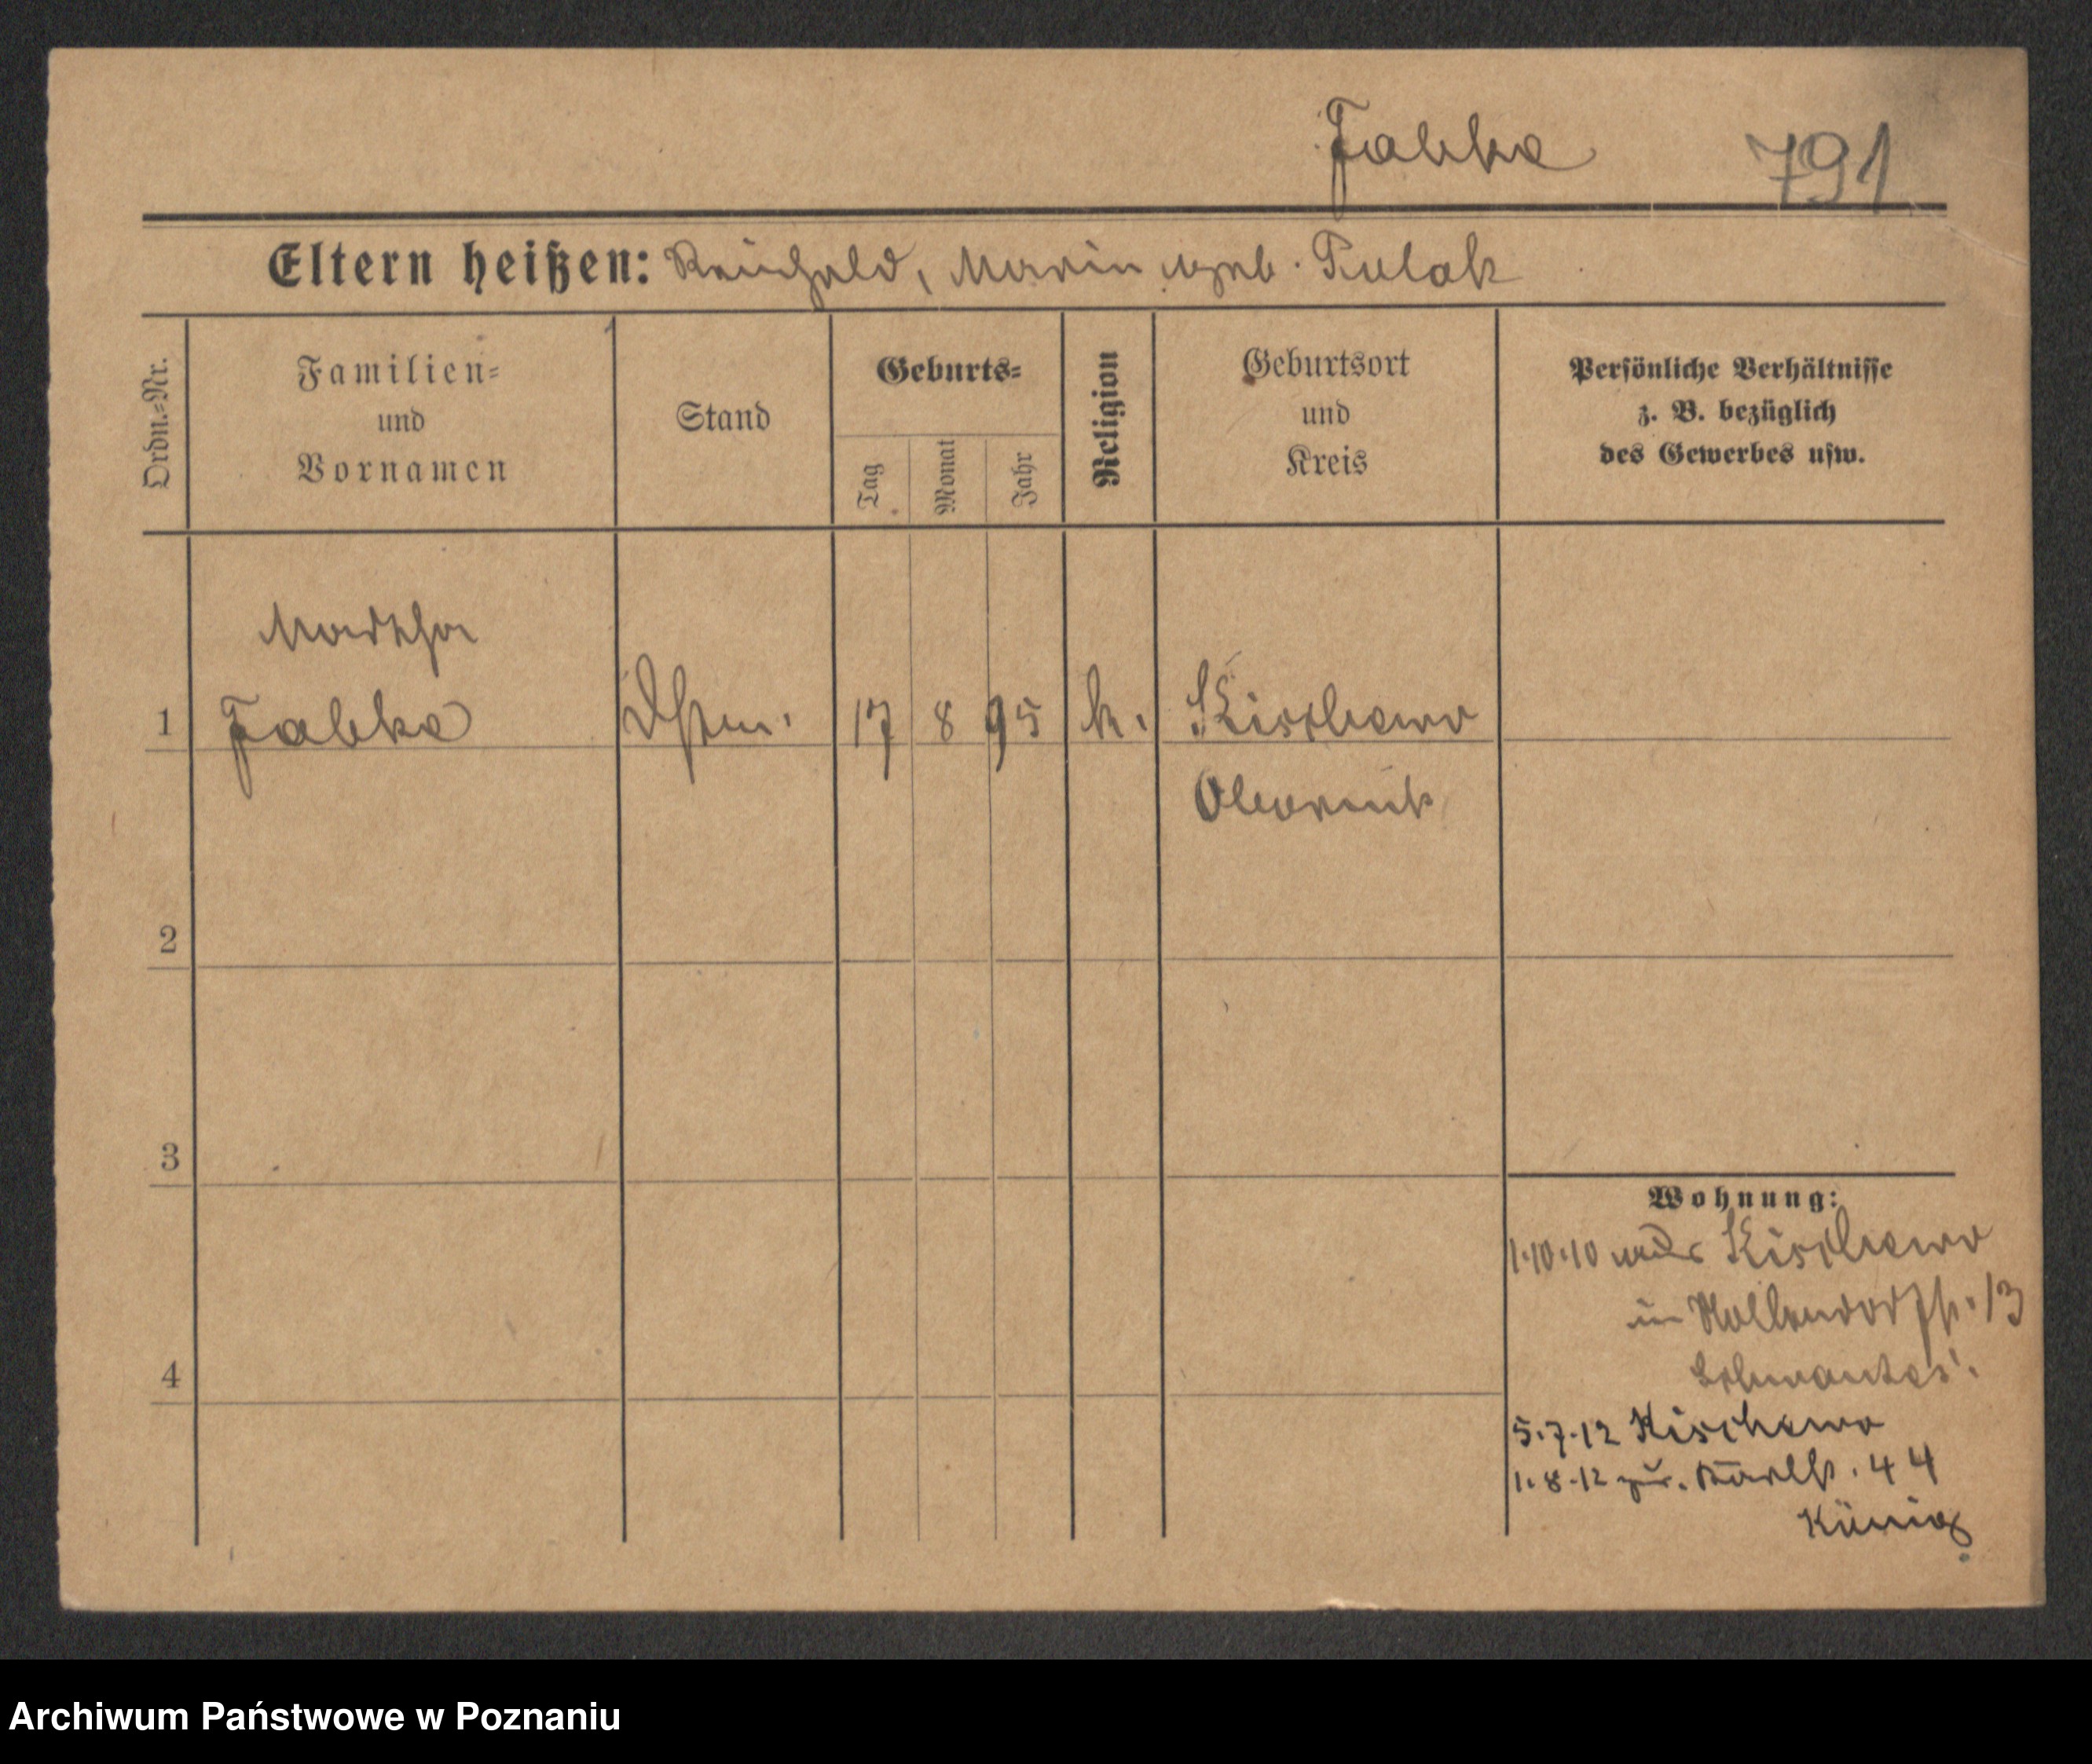 Jabka 791
Eltern heißen: Reinhold, Marie geb. Polak
Ordn.=Nr.
Familien=
und
Vornamen
Stand
Geburts=
Tag
Monat
Jahr
Religion
Geburtsort
und
Kreis
Persönliche Verhältnisse
z. B. bezüglich
des Gewerbes usw.
Martha
1 Jabka Dstm. 17 8 95 k. Kischewo
Obornik
2
3
4
Wohnung:
1.10.10 Kischewo
in Nollendorfstr. 13
5.7.12 Kischewo
1.8.12 zur. Karlstr. 44
König
Archiwum Państwowe w Poznaniu